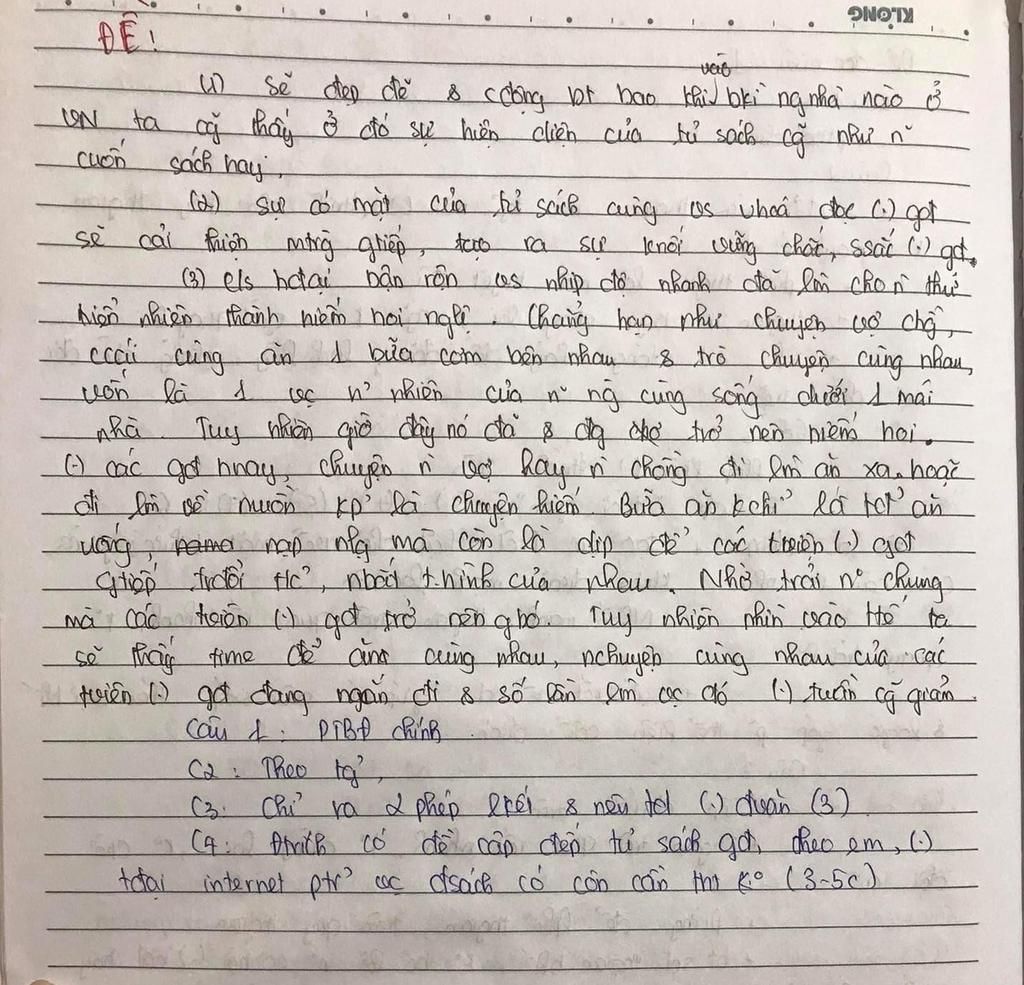 KLONG
ĐỀ!
(1) Sẽ đẹp đẽ & cđộng bt bao khi vào bkì ng nhà nào ở
VN ta cg̃ thấy ở đó sự hiện diện của tủ sách cg̃ như n~
cuốn sách hay.
(2) Sự có mặt của tủ sách cùng vs vhoá đọc (.) gđt
sẽ cải thiện mtrg gtiếp, tạo ra sự knối vững chắc, ssắc (.) gđ.
(3) c/s hđtại bận rộn vs nhịp độ nhanh đã lm cho n` thứ
hiển nhiên thành hiếm hoi nglị. Chẳng hạn như chuyện vợ chồng,
ccái cùng ăn 1 bữa cơm bên nhau & trò chuyện cùng nhau,
vốn là 1 vc n' nhiên của n~ ng cùng sống dưới 1 mái
nhà. Tuy nhiên giờ đây nó đã & đg trở nên hiếm hoi.
(.) các gđt hnay, chuyện n` vợ hay n` chồng đi lm ăn xa, hoặc
đi lm về muộn kp' là chuyện hiếm. Bữa ăn kchỉ là để ăn
uống, nạp nlg mà còn là dịp để các tviên (.) gđt
gtiếp, trđổi t/c', nbắt t.hình của nhau. Nhờ trải n° chung
mà các tviên (.) gđt trở nên gbó. Tuy nhiên nhìn vào ttế ta
sẽ thấy time để ăn cùng nhau, nchuyện cùng nhau của các
tviên (.) gđt đang ngắn đi & số lần lm vc đó (.) tuần cg̃ giảm.
Câu 1: PTBĐ chính
C2: Theo tg',
C3: Chỉ ra 2 phép lkết & nêu td (.) đoạn (3)
C4: Đtrích có đề cập đến tủ sách gđ, theo em, (.)
tđại internet ptr' vc đsách có còn cần thiết k° (3-5c)